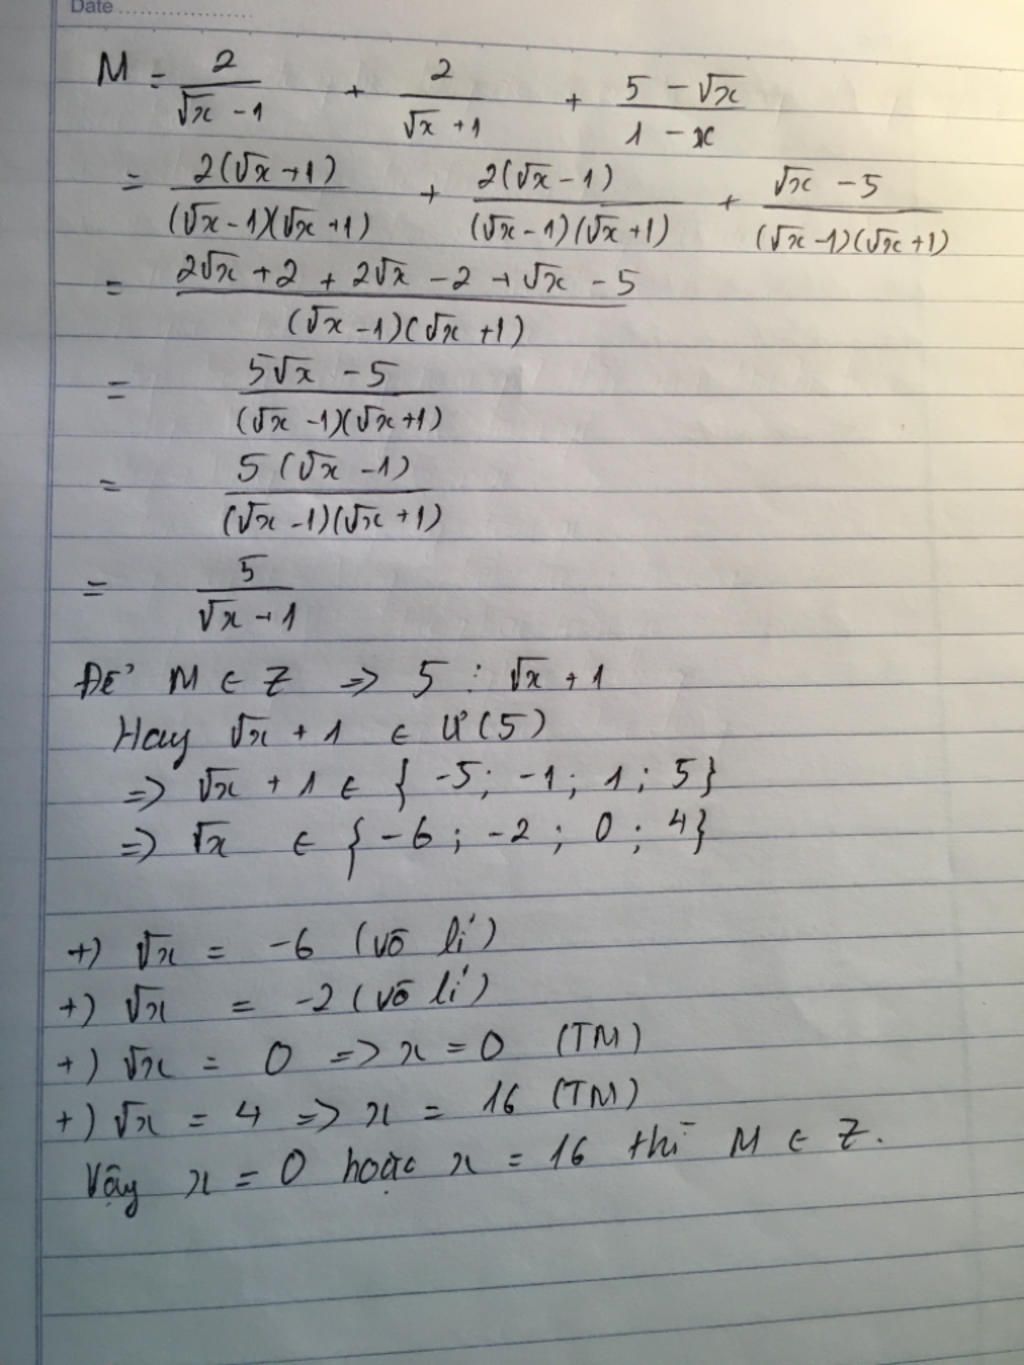 Date
M = 2/(√x - 1) + 2/(√x + 1) + (5 - √x)/(1 - x)
= 2(√x + 1)/((√x - 1)(√x + 1)) + 2(√x - 1)/((√x - 1)(√x + 1)) + (√x - 5)/((√x - 1)(√x + 1))
= (2√x + 2 + 2√x - 2 + √x - 5)/((√x - 1)(√x + 1))
= (5√x - 5)/((√x - 1)(√x + 1))
= 5(√x - 1)/((√x - 1)(√x + 1))
= 5/(√x + 1)
Để M ∈ Z => 5 ⋮ √x + 1
Hay √x + 1 ∈ Ư(5)
=> √x + 1 ∈ { -5; -1; 1; 5}
=> √x ∈ { -6; -2; 0; 4}
+) √x = -6 (vô lí)
+) √x = -2 (vô lí)
+) √x = 0 => x = 0 (TM)
+) √x = 4 => x = 16 (TM)
Vậy x = 0 hoặc x = 16 thì M ∈ Z.